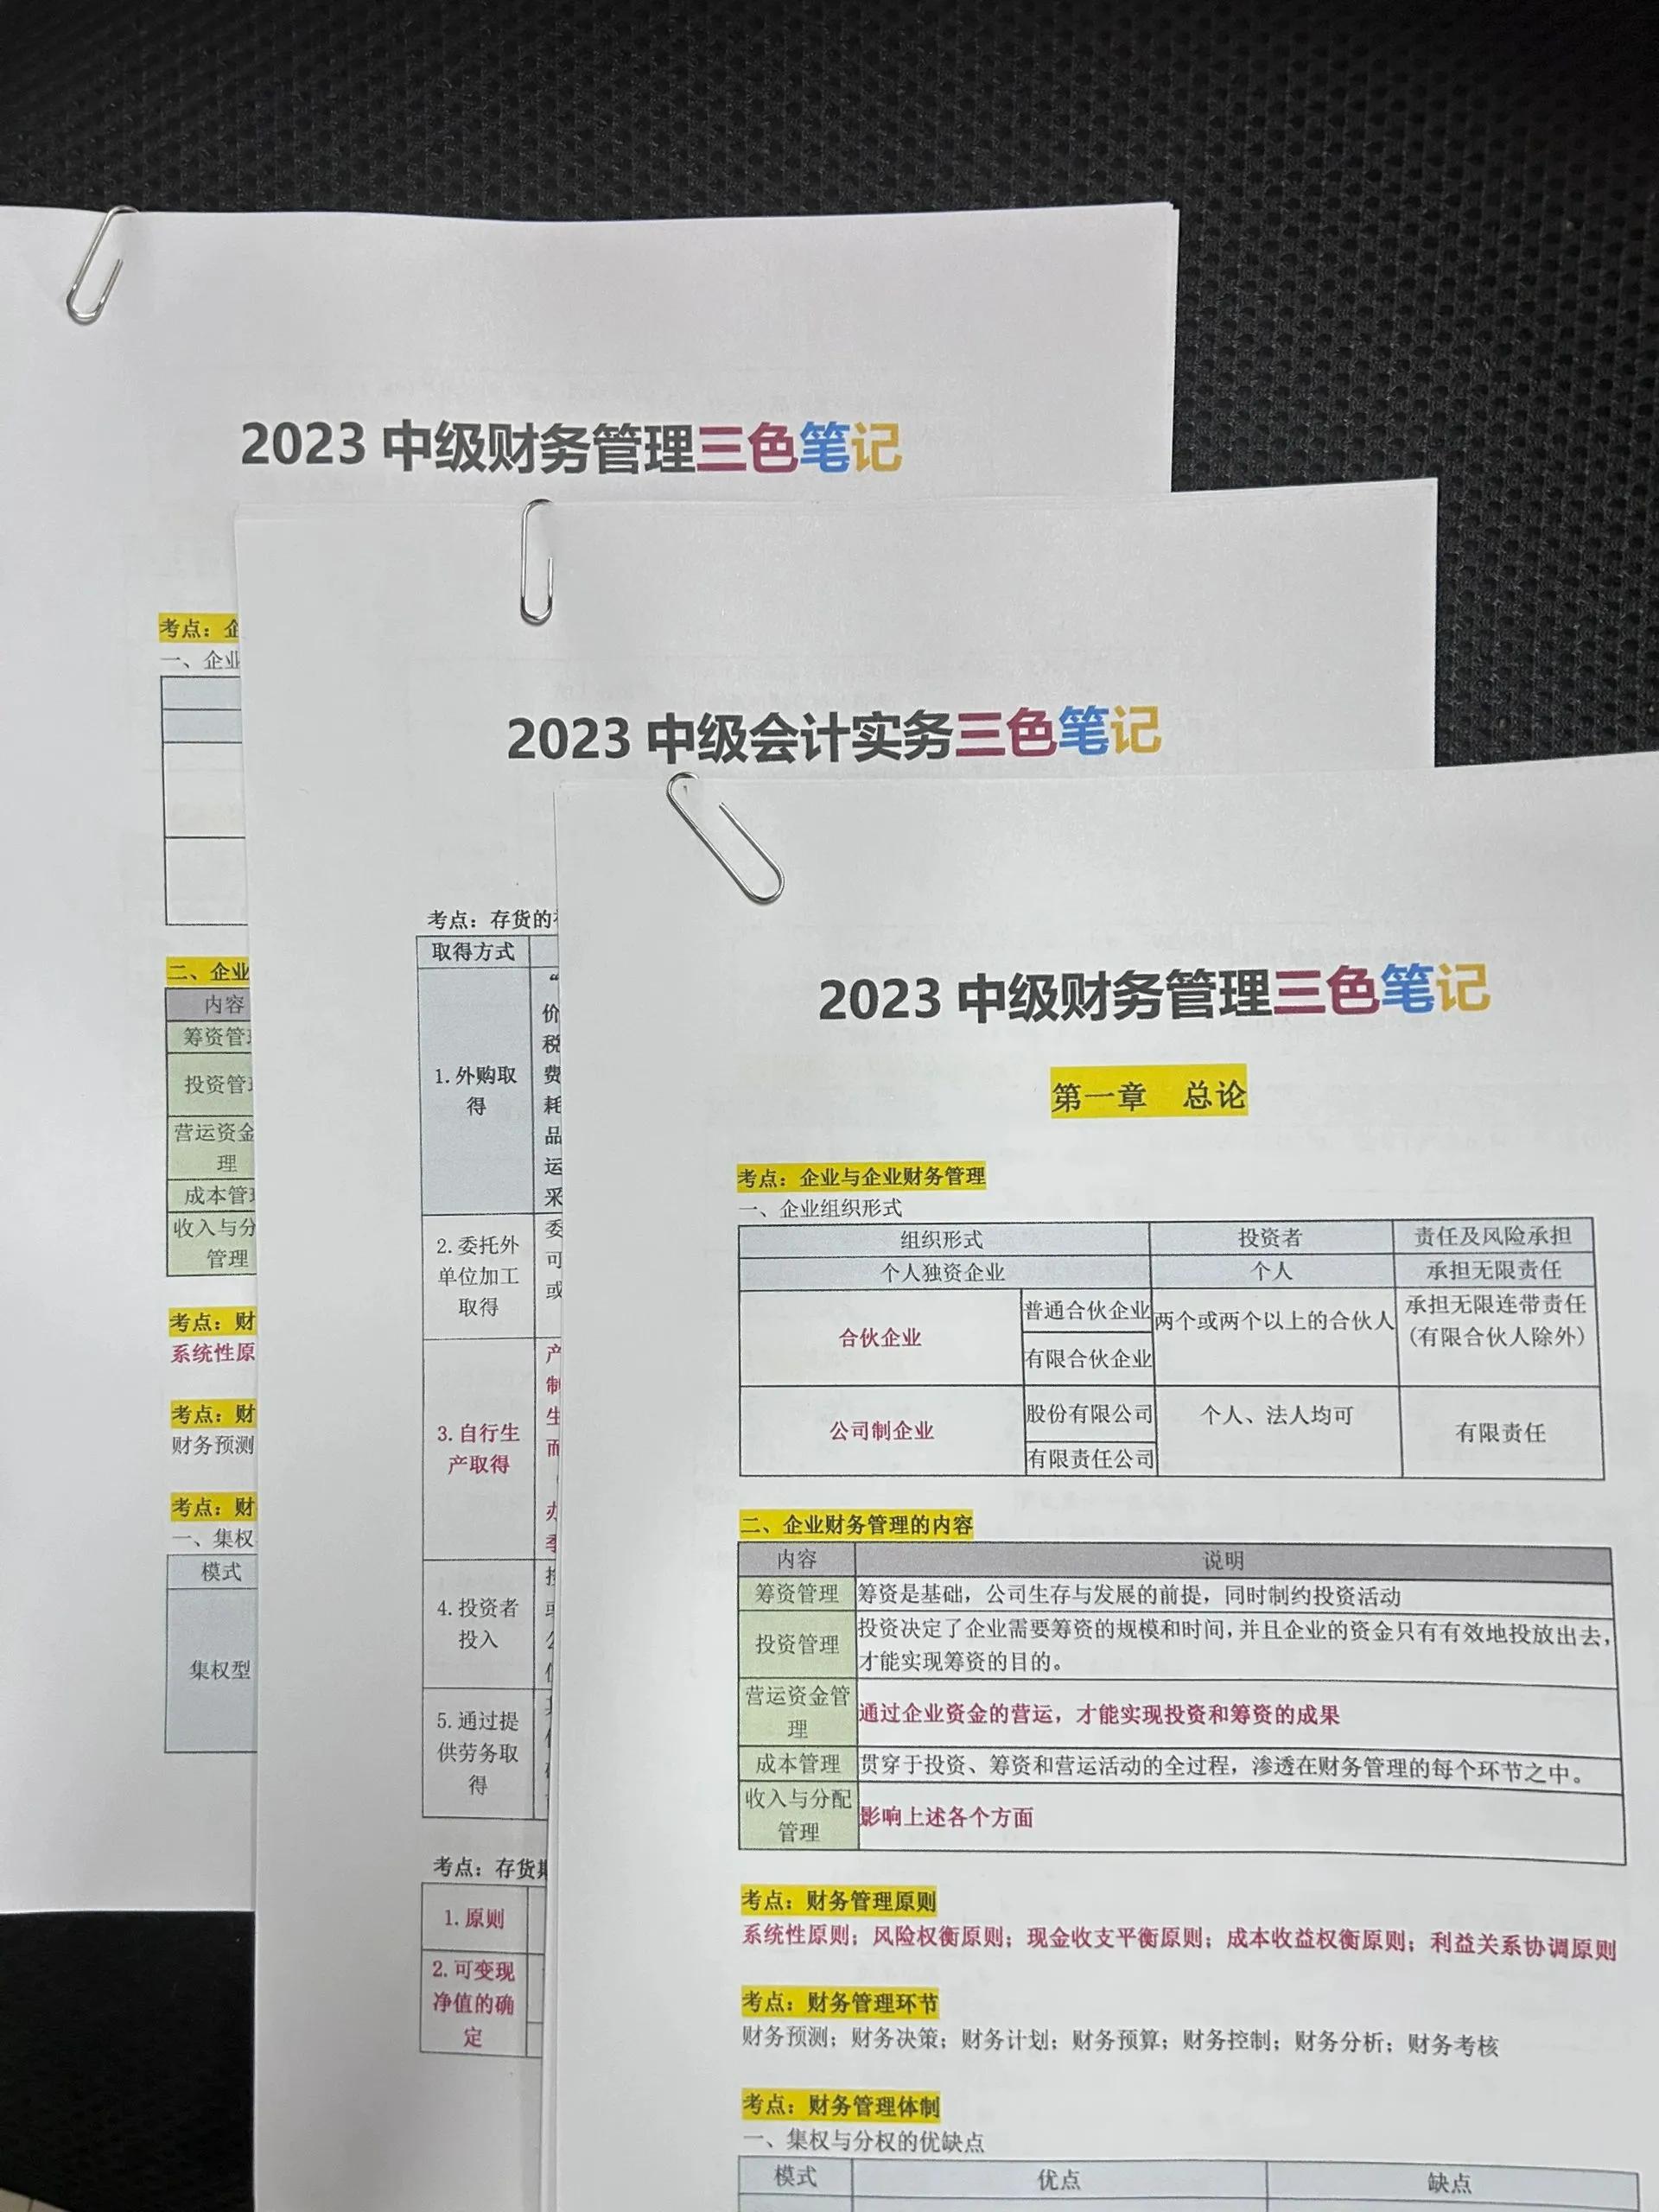 2023 中级财务管理三色笔记
考点：企
一、企业
二、企业
内容
筹资管
投资管
营运资金
理
成本管
收入与分
管理
考点：财
系统性原
考点：财
财务预测
考点：财
一、集权
模式
集权型
2023 中级会计实务三色笔记
考点：存货的
取得方式
“
1.外购取
得
价
税
费
耗
品
运
采
2.委托外
单位加工
取得
委
可
或
3.自行生
产取得
产
制
生
而
办
季
4.投资者
投入
5.通过提
供劳务取
得
考点：存货期
1.原则
2.可变现
净值的确
定
2023 中级财务管理三色笔记
第一章 总论
考点：企业与企业财务管理
一、企业组织形式
组织形式 投资者 责任及风险承担
个人独资企业 个人 承担无限责任
合伙企业 普通合伙企业 两个或两个以上的合伙人 承担无限连带责任
有限合伙企业 (有限合伙人除外)
公司制企业 股份有限公司 个人、法人均可 有限责任
有限责任公司
二、企业财务管理的内容
内容 说明
筹资管理 筹资是基础，公司生存与发展的前提，同时制约投资活动
投资管理 投资决定了企业需要筹资的规模和时间，并且企业的资金只有有效地投放出去，
才能实现筹资的目的。
营运资金管
理 通过企业资金的营运，才能实现投资和筹资的成果
成本管理 贯穿于投资、筹资和营运活动的全过程，渗透在财务管理的每个环节之中。
收入与分配
管理 影响上述各个方面
考点：财务管理原则
系统性原则；风险权衡原则；现金收支平衡原则；成本收益权衡原则；利益关系协调原则
考点：财务管理环节
财务预测；财务决策；财务计划；财务预算；财务控制；财务分析；财务考核
考点：财务管理体制
一、集权与分权的优缺点
模式 优点 缺点